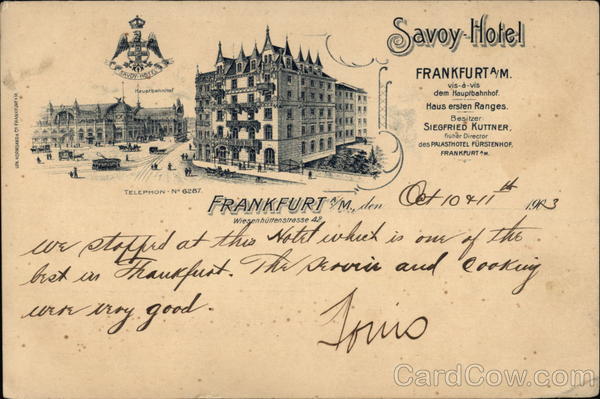 Savoy-Hotel
SAVOY-HOTEL
Hauptbahnhof
FRANKFURT A/M.
vis-à-vis
dem Hauptbahnhof.
Haus ersten Ranges.
Besitzer:
SIEGFRIED KUTTNER,
früher Director
des PALASTHOTEL FÜRSTENHOF,
FRANKFURT A/M.
TELEPHON-Nº 6287.
FRANKFURT A/M., den Oct 10 & 11th 1903
Wiesenhüttenstrasse 42
we stopped at this Hotel which is one of the
best in Frankfurt. The service and cooking
were very good.
CardCow.com